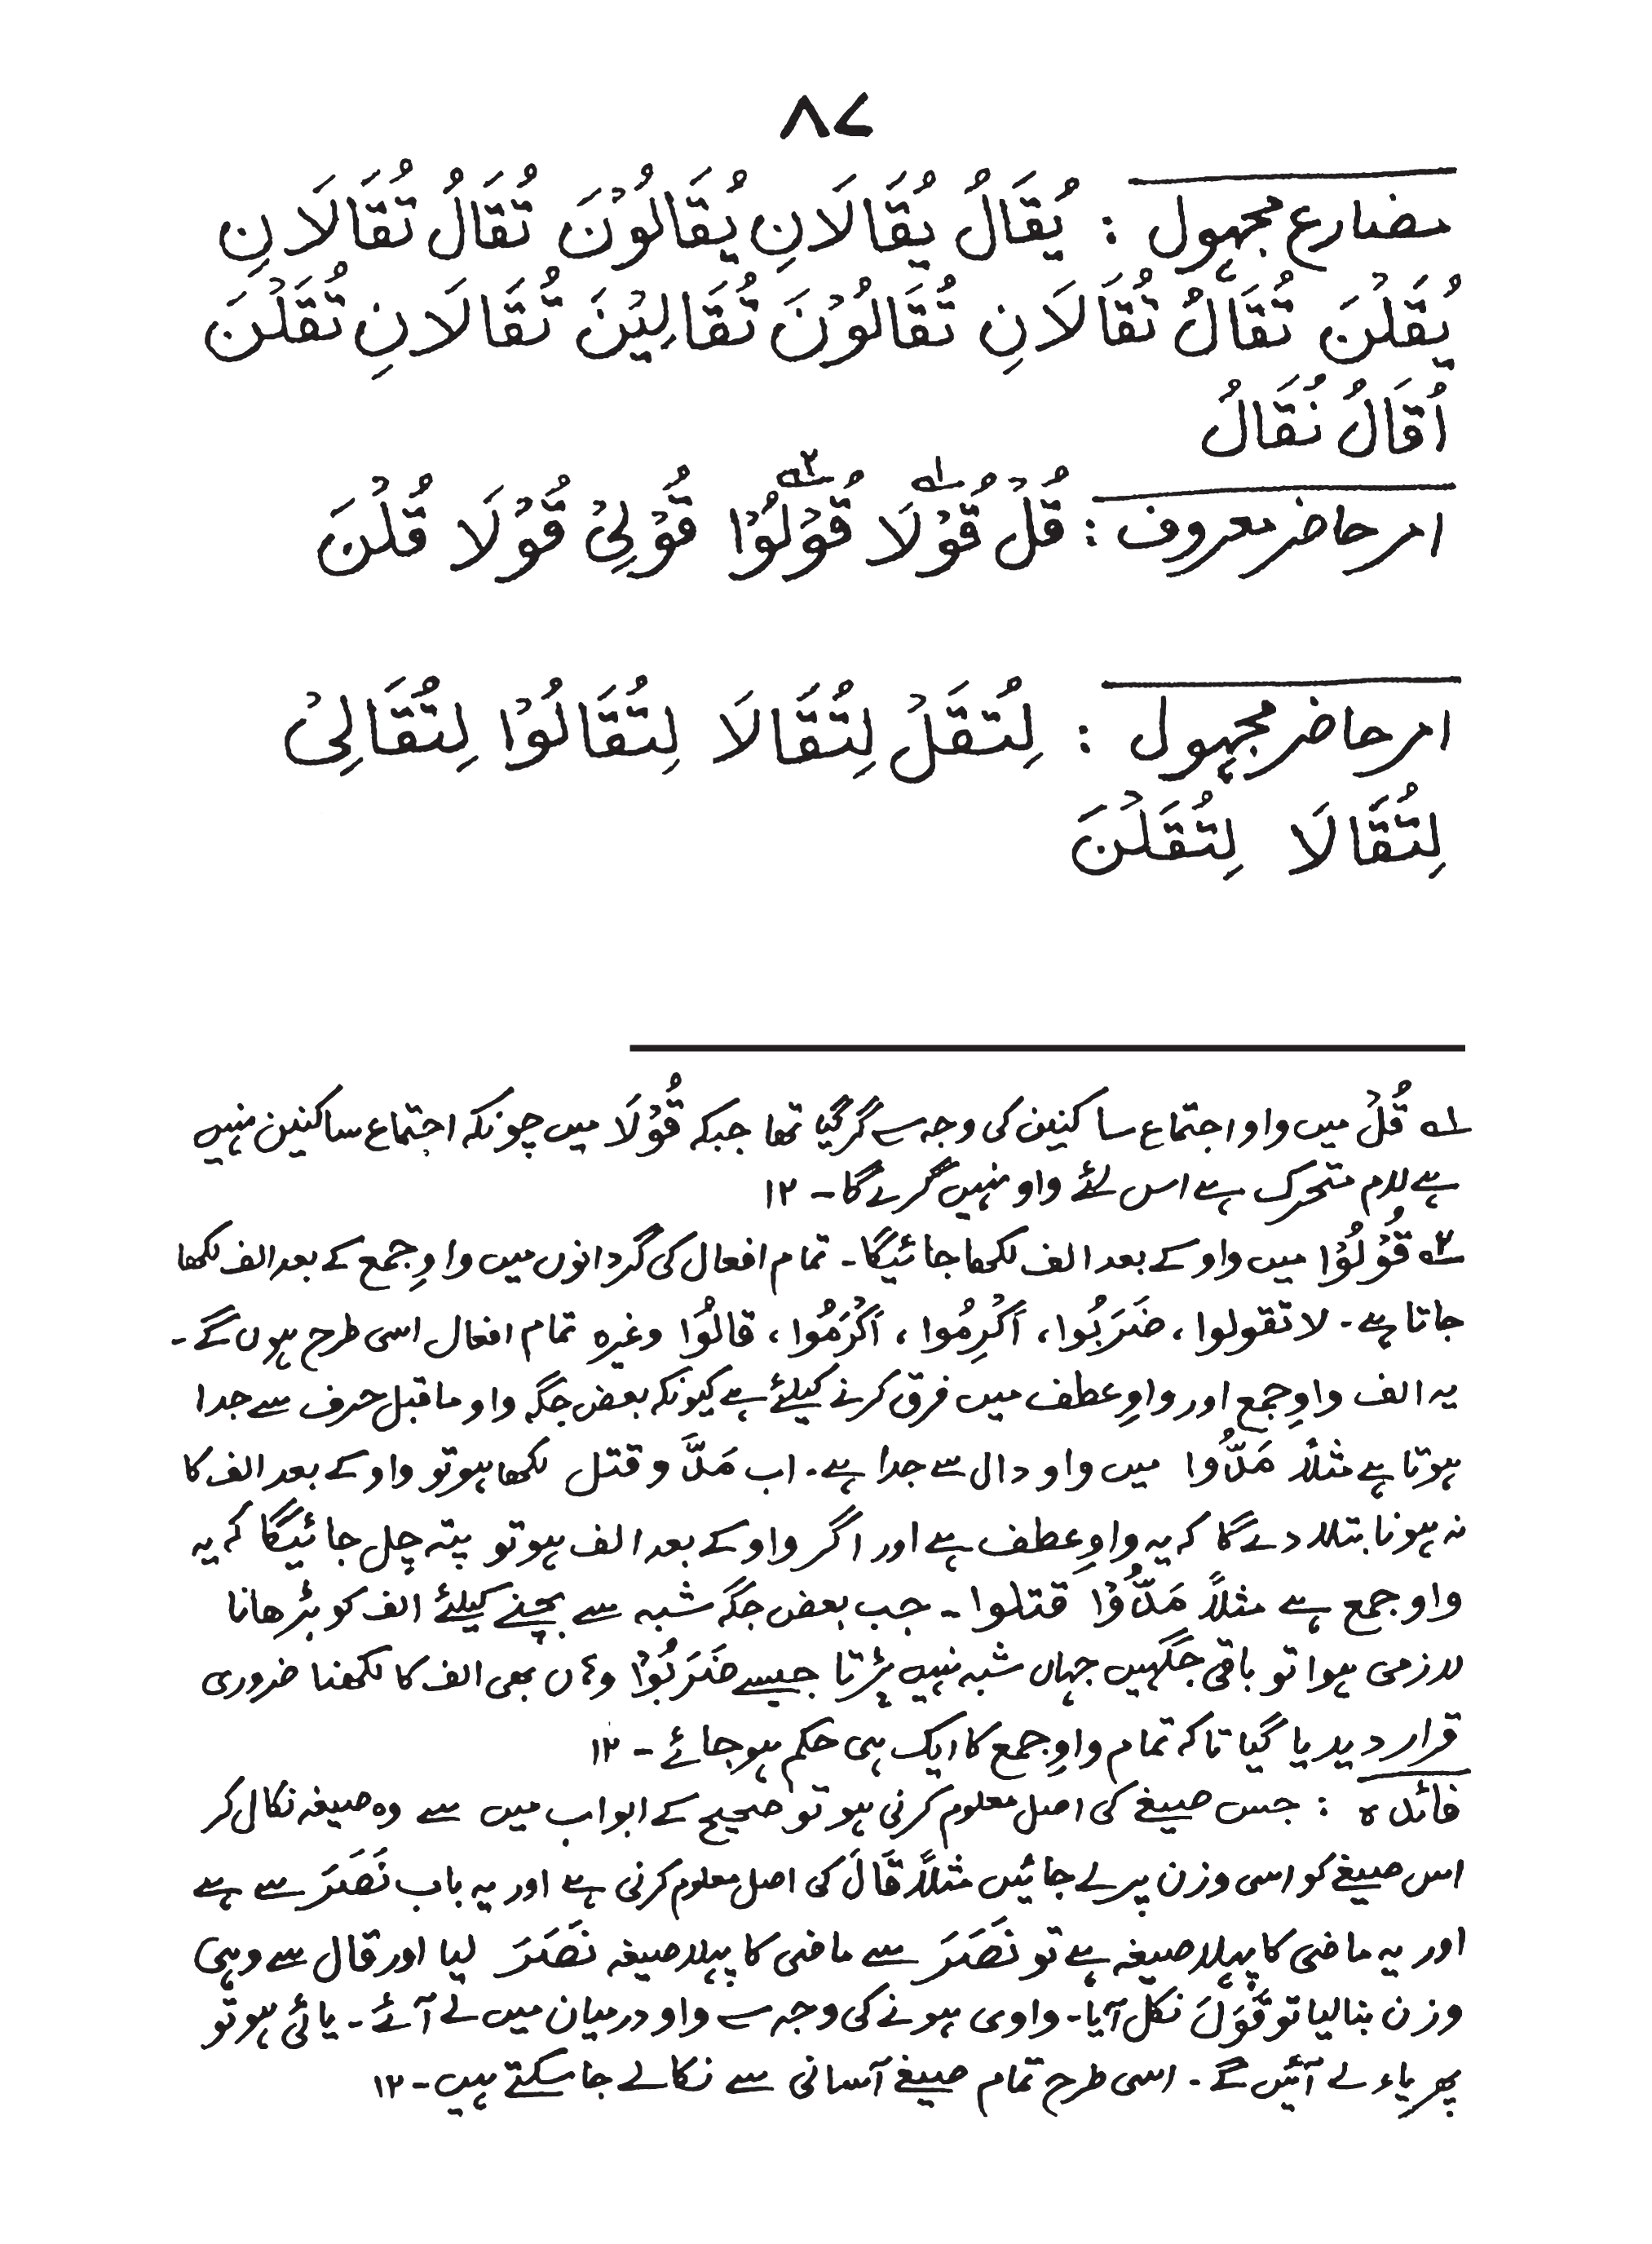 ۸۷
مضارع مجہول : يُقَالُ يُقَالَانِ يُقَالُوْنَ تُقَالُ تُقَالَانِ
يُقَلْنَ تُقَالُ تُقَالَانِ تُقَالُوْنَ تُقَالِيْنَ تُقَالَانِ تُقَلْنَ
اُقَالُ نُقَالُ
امر حاضر معروف : قُلْ قُوْلَا ۱ قُوْلُوْا ۲ قُوْلِيْ قُوْلَا قُلْنَ
امر حاضر مجہول : لِتُقَلْ لِتُقَالَا لِتُقَالُوْا لِتُقَالِيْ
لِتُقَالَا لِتُقَلْنَ
۱ قُلْ میں واو اجتماع ساکنین کی وجہ سے گر گیا تھا جبکہ قُوْلَا میں چونکہ اجتماع ساکنین نہیں
ہے لام متحرک ہے اس لئے واو نہیں گرے گا - ۱۲
۲ قُوْلُوْا میں واو کے بعد الف لکھا جائیگا - تمام افعال کی گردانوں میں واوِ جمع کے بعد الف لکھا
جاتا ہے - لا تقولوا ، ضَرَبُوا ، اَكْرِمُوا ، اَكْرَمُوا ، قالُوا وغیرہ تمام افعال اسی طرح ہوں گے -
یہ الف واوِ جمع اور واوِ عطف میں فرق کرنے کیلئے ہے کیونکہ بعض جگہ واو ماقبل حرف سے جدا
ہوتا ہے مثلاً مَدُّوا میں واو دال سے جدا ہے - اب مَدَّ و قتل لکھا ہو تو واو کے بعد الف کا
نہ ہونا بتلا دے گا کہ یہ واوِ عطف ہے اور اگر واو کے بعد الف ہو تو پتہ چل جائیگا کہ یہ
واو جمع ہے مثلاً مَدُّوْا قتلوا - جب بعض جگہ شبہ سے بچنے کیلئے الف کو بڑھانا
لازمی ہوا تو باقی جگہیں جہاں شبہ نہیں پڑتا جیسے ضَرَبُوْا وہاں بھی الف کا لکھنا ضروری
قرار دیدیا گیا تاکہ تمام واوِ جمع کا ایک ہی حکم ہو جائے - ۱۲
فائدہ : جس صیغے کی اصل معلوم کرنی ہو تو صحیح کے ابواب میں سے وہ صیغہ نکال کر
اس صیغے کو اسی وزن پر لے جائیں مثلاً قَالَ کی اصل معلوم کرنی ہے اور یہ باب نَصَرَ سے ہے
اور یہ ماضی کا پہلا صیغہ ہے تو نَصَرَ سے ماضی کا پہلا صیغہ نَصَرَ لیا اور قال سے وہی
وزن بنا لیا تو قَوَلَ نکل آیا - واوی ہونے کی وجہ سے واو درمیان میں لے آئے - یائی ہو تو
پھر یاء لے آئیں گے - اسی طرح تمام صیغے آسانی سے نکالے جاسکتے ہیں - ۱۲